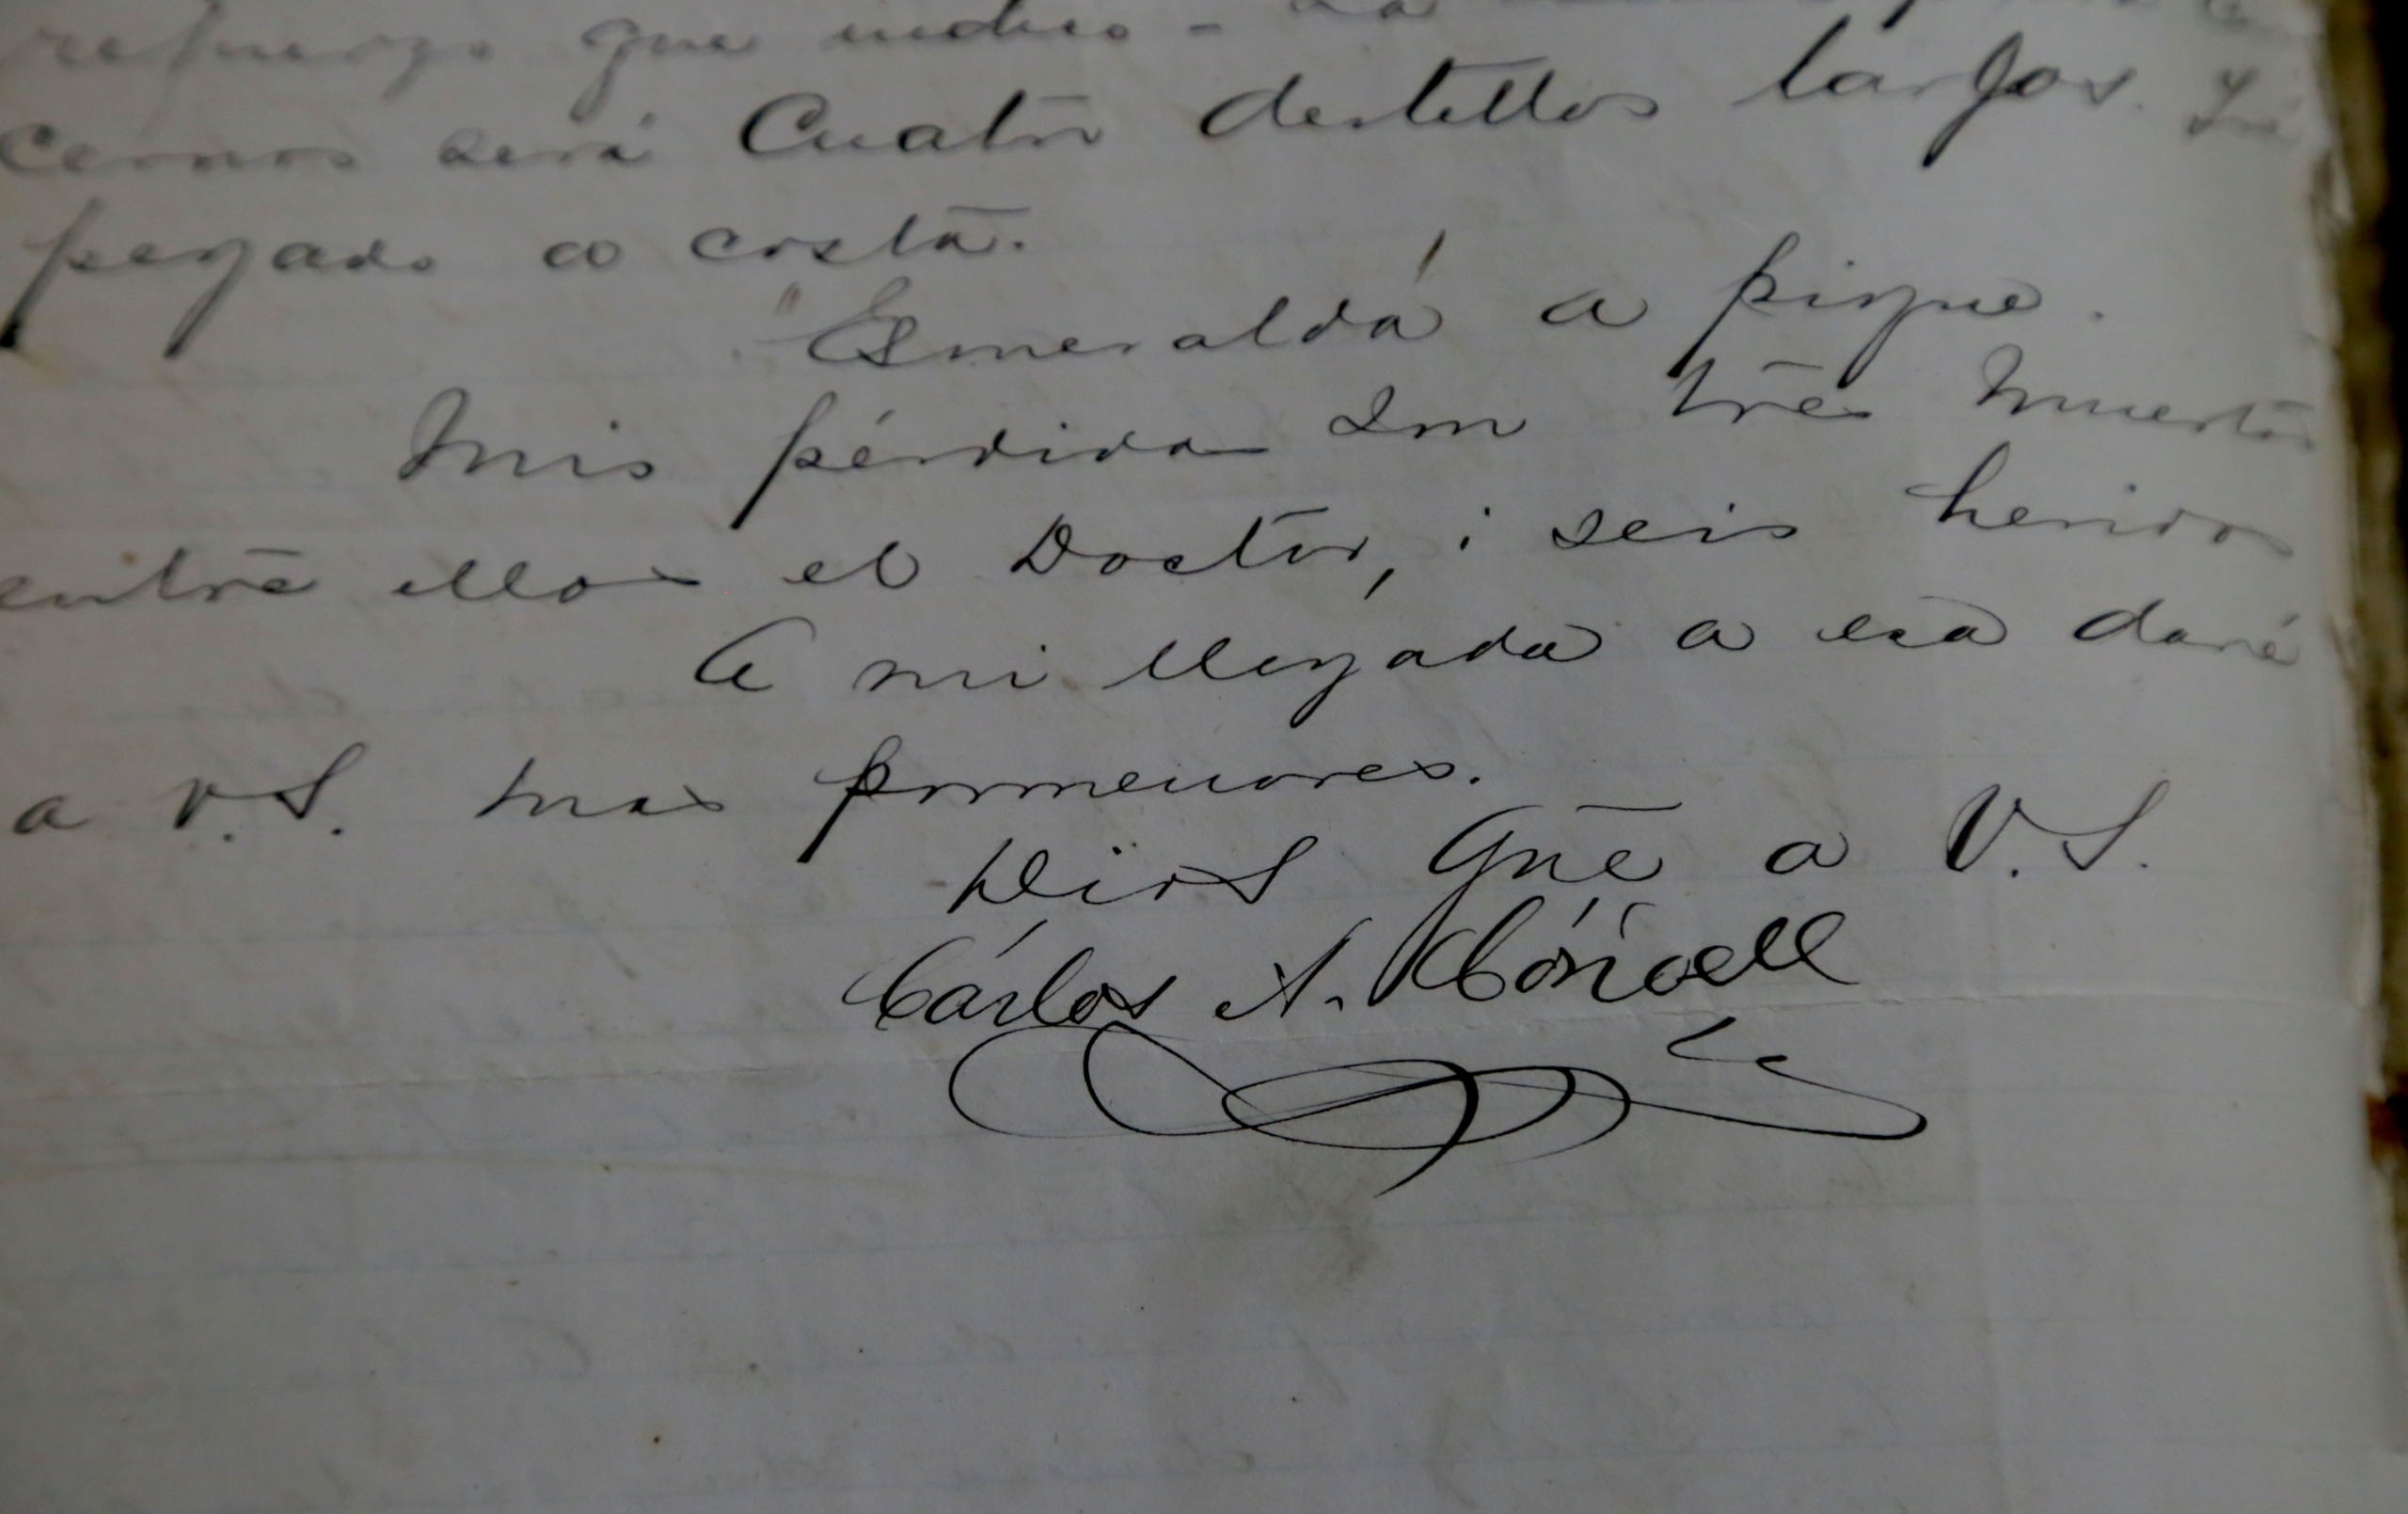 refuerzo que indico - La
cernos será Cuatro destellos largos. Iré
pegado a costa.
"Esmeralda" a pique.
Mis pérdidas son tres muertos
entre ellos el Doctor, i seis heridos
A mi llegada a esa daré
a V.S. mas pormenores.
Dios gue a V.S.
Cárlos A. Cóndell